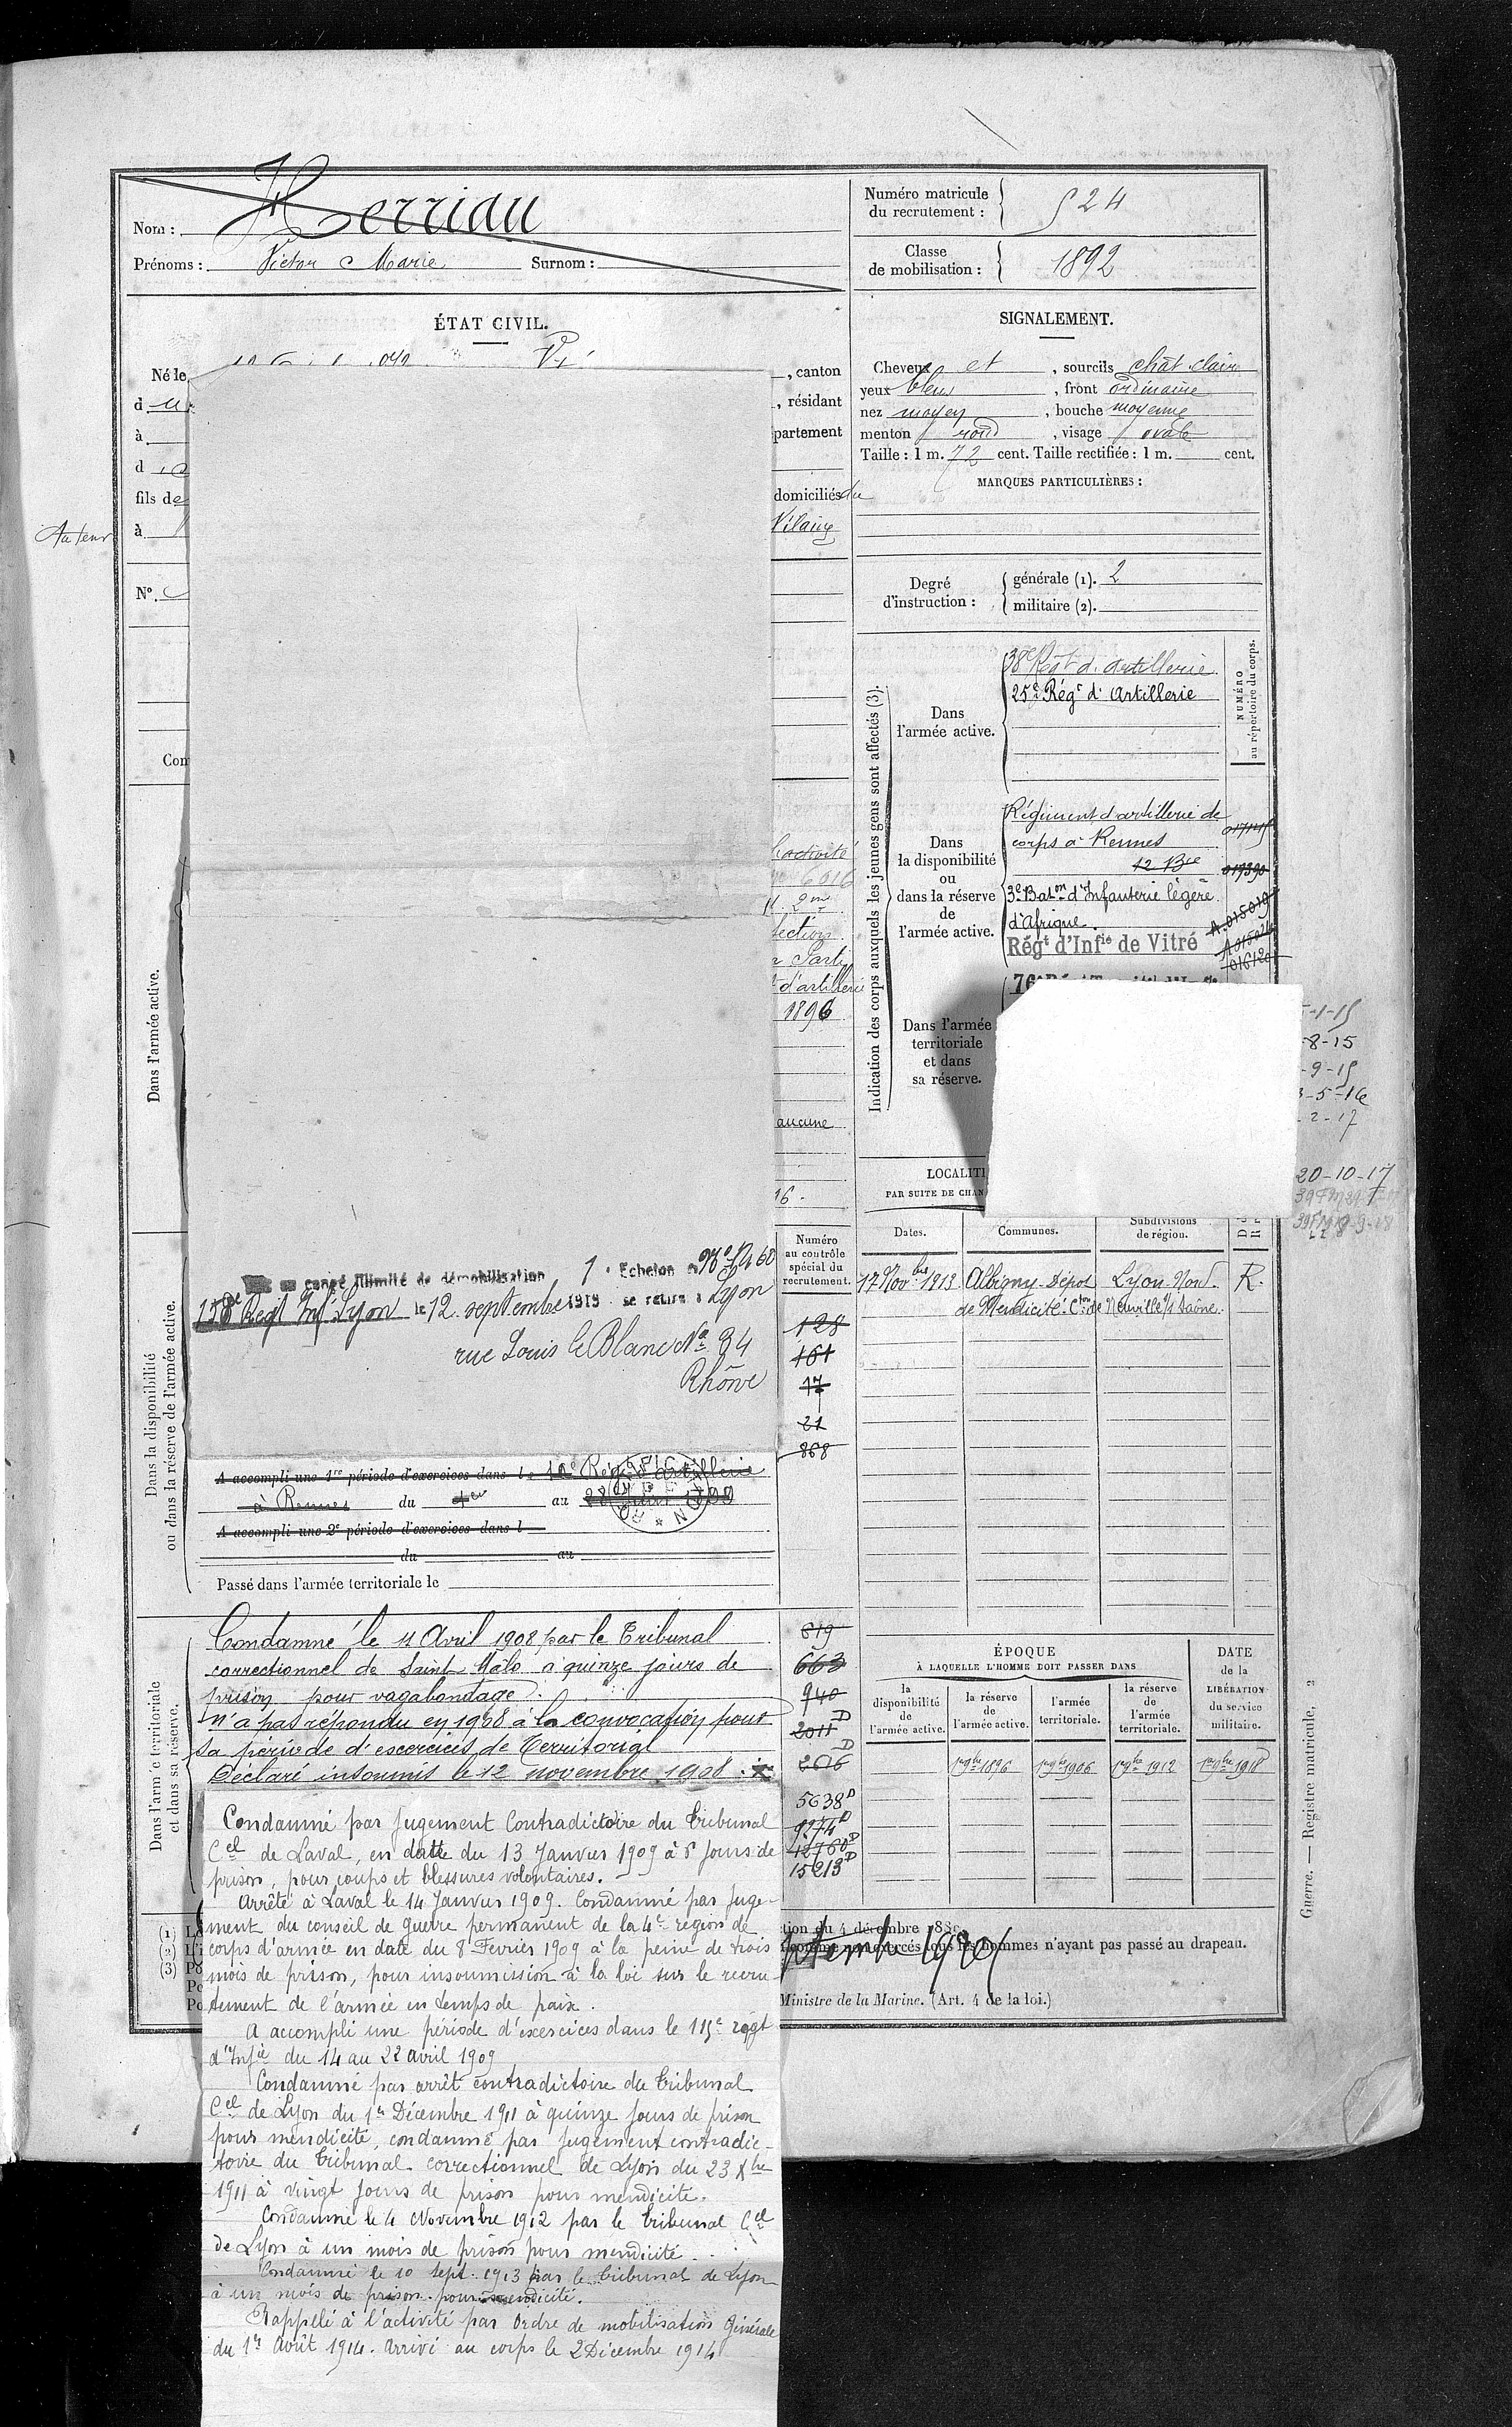 Nom : Herriau
Prénoms : Victor Marie Surnom :
Numéro matricule
du recrutement : 524
Classe
de mobilisation : 1892
ÉTAT CIVIL.
Né le
, canton
d
, résidant
à
partement
d
fils de
domiciliés du
à
Vilaine
Nº.
Con
SIGNALEMENT.
Cheveux et , sourcils chât clair
yeux bleus , front ordinaire
nez moyen , bouche moyenne
menton rond , visage ovale
Taille : 1 m. 72 cent. Taille rectifiée : 1 m. cent.
MARQUES PARTICULIÈRES :
Degré
d'instruction :
générale (1). 2
militaire (2).
Indication des corps auxquels les jeunes gens sont affectés (3).
NUMÉRO
au répertoire du corps.
Dans
l'armée active.
38e Régt d. artillerie
25e Régt d' Artillerie
Dans
la disponibilité
ou
dans la réserve
de
l'armée active.
Régiment d'artillerie de
corps à Rennes
12 Bie
3e Baton d'Infanterie légère
d'Afrique.
Régt d'Infie de Vitré
017390
A.015019
016120
Dans l'armée
territoriale
et dans
sa réserve.
-8-15
-9-15
-5-16
-2-17
20-10-17
LOCALITÉ
PAR SUITE DE CHAN
Dates.
Communes.
Subdivisions
de région.
17 Novbre 1913 Albigny-Dépôt Lyon-Nord. R.
de Mendicité. Cton de Neuville s/ Saône.
Dans l'armée active.
l'activité
6016
2me
section
d'artillerie
1896
aucune
16.
Numéro
au contrôle
spécial du
recrutement.
128
161
17
21
868
Dans la disponibilité
ou dans la réserve de l'armée active.
en congé illimité de démobilisation 1 Echelon
158e Regt Inf Lyon le 12 septembre 1919 se retire à Lyon
rue Louis le Blanc No 34
Rhône
A accompli une 1re période d'exercices dans le 10e Rég. d'artillerie
à Rennes du 1er au 28
A accompli une 2e période d'exercices dans l
du au
Passé dans l'armée territoriale le
Dans l'armée territoriale
et dans sa réserve.
Condamné le 11 Avril 1908 par le Tribunal
correctionnel de Saint Malo à quinze jours de
prison pour vagabondage.
N'a pas répondu en 1908 à la convocation pour
sa période d'exercices de Territorial
Déclaré insoumis le 12 novembre 1908.
619
663
940
2011 D
2616 D
5638 D
9274 D
12760 D
15213 D
Condamné par Jugement Contradictoire du Tribunal
Cel de Laval, en date du 13 Janvier 1909 à 8 jours de
prison, pour coups et blessures volontaires.
Arrêté à Laval le 14 Janvier 1909. Condamné par Juge-
ment du conseil de guerre permanent de la 4e région de
corps d'armée en date du 8 Février 1909 à la peine de trois
mois de prison, pour insoumission à la loi sur le recru
tement de l'armée en temps de paix.
A accompli une période d'exercices dans le 115e régt
d'Infie du 14 au 22 avril 1909
Condamné par arrêt contradictoire du Tribunal
Cel de Lyon du 1er Décembre 1911 à quinze jours de prison
pour mendicité, condamné par jugement contradic-
toire du Tribunal correctionnel de Lyon du 23 Xbre
1911 à vingt jours de prison pour mendicité.
Condamné le 4 Novembre 1912 par le Tribunal Cel
de Lyon à un mois de prison pour mendicité.
Condamné le 10 Sept. 1913 par le Tribunal de Lyon
à un mois de prison pour mendicité.
Rappelé à l'activité par Ordre de mobilisation Générale
du 1er Août 1914. Arrivé au corps le 2 Décembre 1914
ÉPOQUE
À LAQUELLE L'HOMME DOIT PASSER DANS
DATE
de la
LIBÉRATION
du service
militaire.
la
disponibilité
de
l'armée active.
la réserve
de
l'armée active.
l'armée
territoriale.
la réserve
de
l'armée
territoriale.
1er 9bre 1896 1er 9bre 1906 1er 9bre 1912 1er 9bre 1918
(1)
(2)
(3)
tion du 4 décembre 188
tous les hommes n'ayant pas passé au drapeau.
Ministre de la Marine. (Art. 4 de la loi.)
Guerre. — Registre matricule, 2